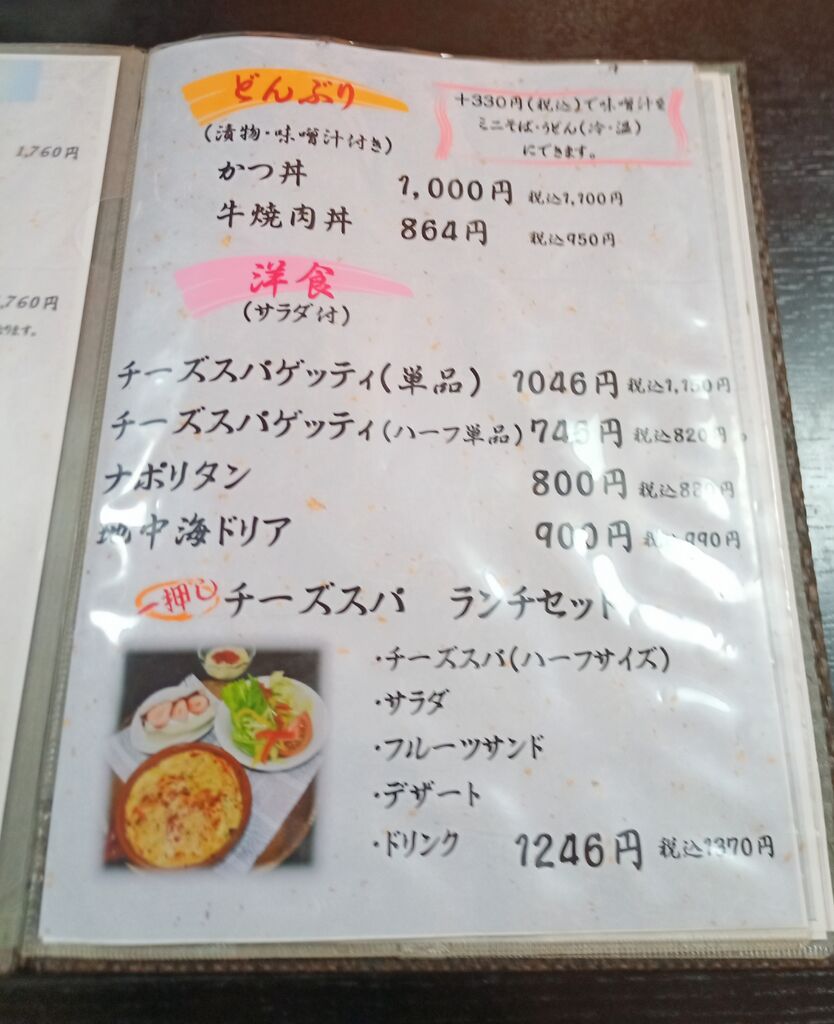 1,760円
,760円
ります。
どんぶり
(漬物・味噌汁付き)
+330円(税込)で味噌汁を
ミニそば・うどん(冷・温)
にできます。
かつ丼 1,000円 税込1,100円
牛焼肉丼 864円 税込950円
洋食
(サラダ付)
チーズスパゲッティ(単品) 1046円 税込1,150円
チーズスパゲッティ(ハーフ単品) 746円 税込820円
ナポリタン 800円 税込880円
地中海ドリア 900円 税込990円
一押し チーズスパ ランチセット
・チーズスパ(ハーフサイズ)
・サラダ
・フルーツサンド
・デザート
・ドリンク 1246円 税込1370円